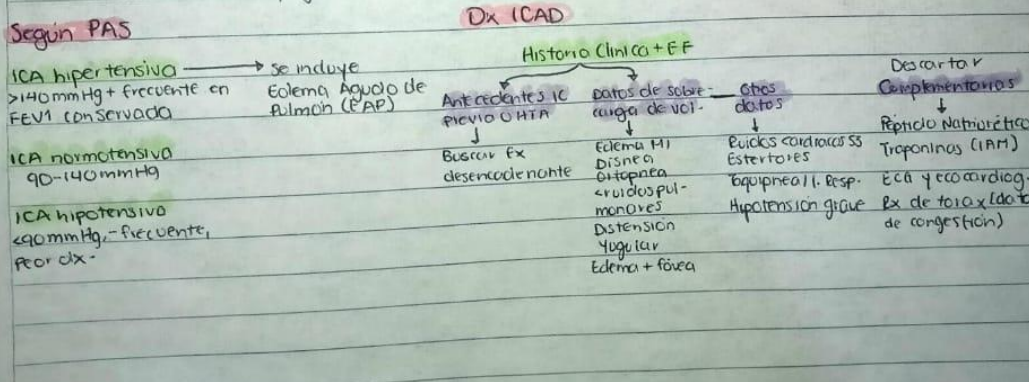 Según PAS
ICA hipertensiva → se incluye
>140mmHg + frecuente en
FEVI conservada
Edema Agudo de
Pulmón (EAP)
ICA normotensiva
90-140mmHg
ICA hipotensiva
<90mmHg, -frecuente,
Peor dx-
Dx ICAD
Historia Clínica + EF
Antecedentes IC
previo o HTA
↓
Buscar Fx
desencadenante
Datos de sobre-
carga de vol.
↓
Edema MI
Disnea
Ortopnea
<ruidos pul-
monares
Distensión
Yugular
Edema + fóvea
Otros
datos
↓
Ruidos cardiacos S3
Estertores
Taquipnea I. Resp.
Hipotensión grave
Descartar
Complementarios
↓
Péptido Natriurético
Troponinas (IAM)
ECG y ecocardiog.
Rx de torax (dato
de congestión)